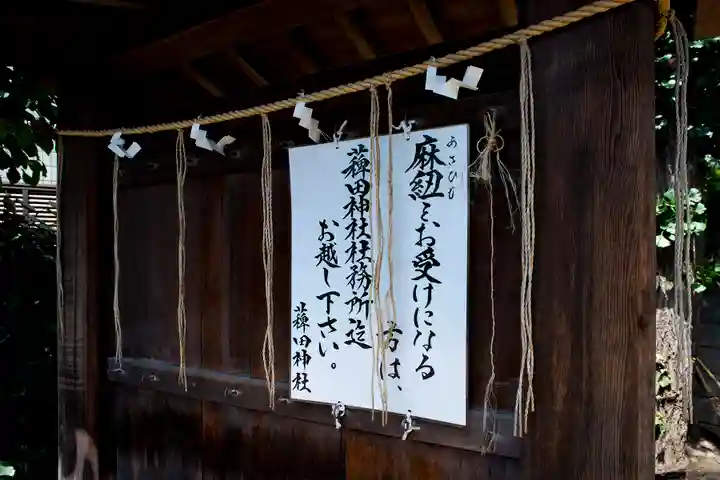 あさひも
麻紐をお受けになる
方は、
薭田神社社務所迄
お越し下さい。
薭田神社